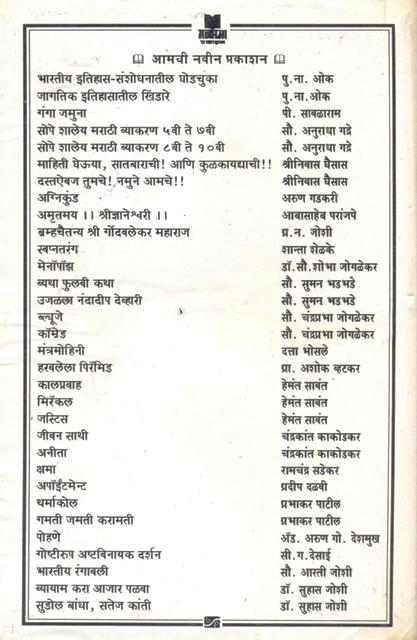 मनोरमा
प्रकाशन
आमची नवीन प्रकाशन
भारतीय इतिहास-संशोधनातील घोडचुका पु. ना. ओक
जागतिक इतिहासातील खिंडारे पु. ना. ओक
गंगा जमुना पी. सावळाराम
सोपे शालेय मराठी व्याकरण ५वी ते ७वी सौ. अनुराधा गद्रे
सोपे शालेय मराठी व्याकरण ८वी ते १०वी सौ. अनुराधा गद्रे
माहिती घेऊया, सातबाराची! आणि कुळकायद्याची!! श्रीनिवास घैसास
दस्तऐवज तुमचे! नमुने आमचे!! श्रीनिवास घैसास
अग्निकुंड अरुण गडकरी
अमृतमय ।। श्रीज्ञानेश्वरी ।। आबासाहेब परांजपे
ब्रम्हचैतन्य श्री गोंदवलेकर महाराज प्र. न. जोशी
स्वप्नतरंग शान्ता शेळके
मेनॉपॉझ डॉ. सौ. शोभा जोगळेकर
व्यथा फुलवी कथा सौ. सुमन भडभडे
उजळला नंदादीप देव्हारी सौ. सुमन भडभडे
ब्ल्यूजे सौ. चंद्रप्रभा जोगळेकर
कॉम्रेड सौ. चंद्रप्रभा जोगळेकर
मंत्रमोहिनी दत्ता भोसले
हरवलेला पिरॅमिड प्रा. अशोक व्हटकर
कालप्रवाह हेमंत सावंत
मिरॅकल हेमंत सावंत
जस्टिस हेमंत सावंत
जीवन साथी चंद्रकांत काकोडकर
अनीता चंद्रकांत काकोडकर
क्षमा रामचंद्र सडेकर
अपॉईंटमेन्ट प्रदीप दळवी
थर्माकोल प्रभाकर पाटील
गमती जमती करामती प्रभाकर पाटील
पोहणे अ‍ॅड. अरुण गो. देशमुख
गोष्टीरुप अष्टविनायक दर्शन सी. ग. देसाई
भारतीय रंगावली सौ. आरती जोशी
व्यायाम करा आजार पळवा डॉ. सुहास जोशी
सुडोल बांधा, सतेज कांती डॉ. सुहास जोशी